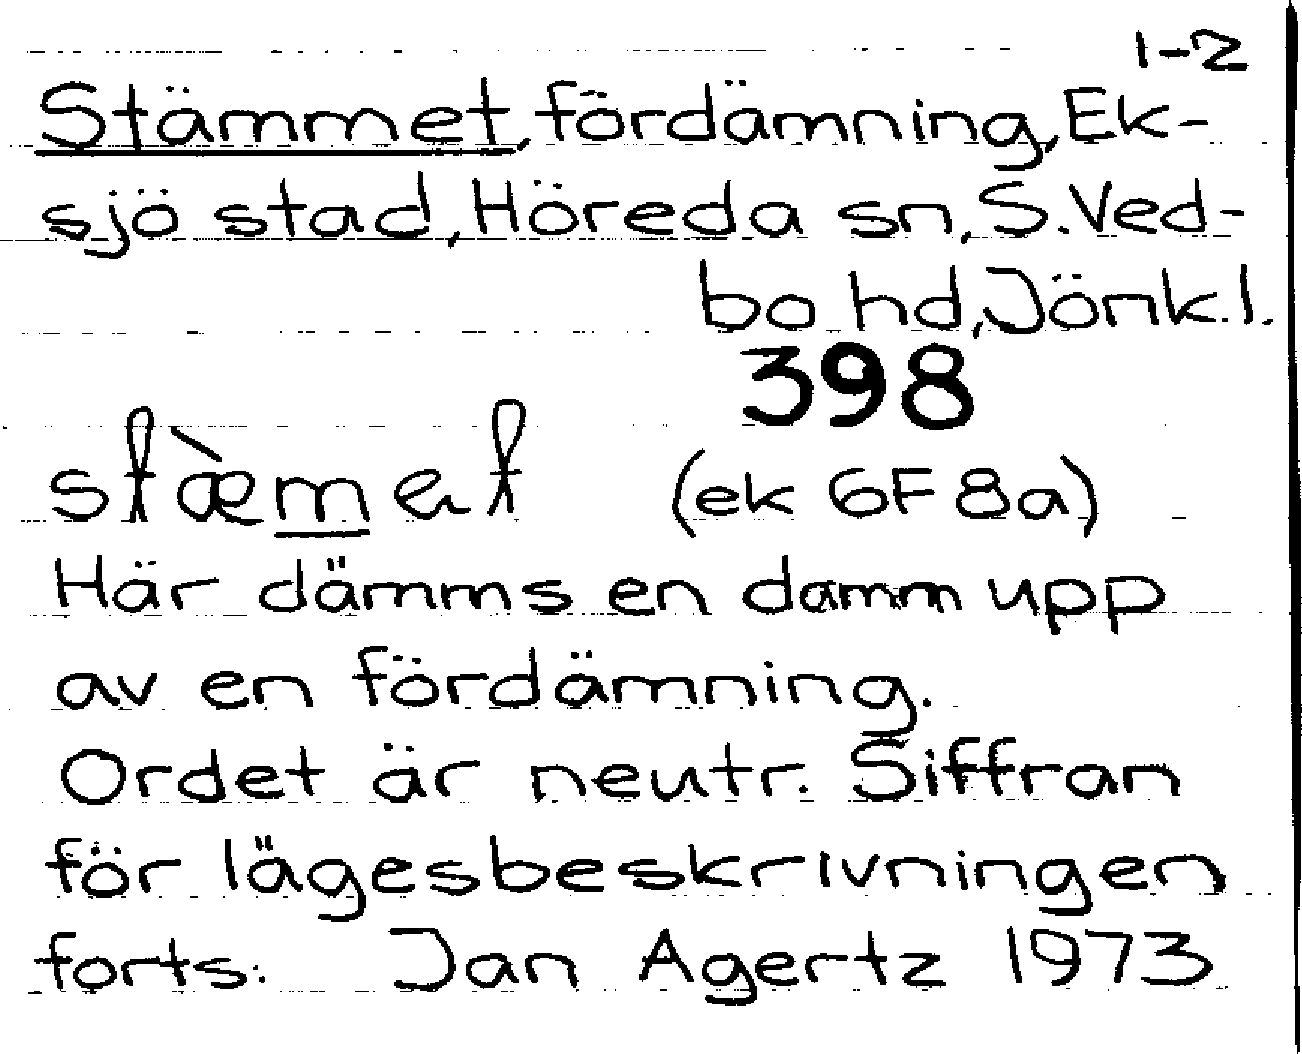 1-2
Stämmet, fördämning, Ek-
sjö stad, Höreda sn, S. Ved-
bo hd, Jönk. l.
398
stæ̀met (ek 6F 8a)
Här dämms en damm upp
av en fördämning.
Ordet är neutr. Siffran
för lägesbeskrivningen
forts. Jan Agertz 1973